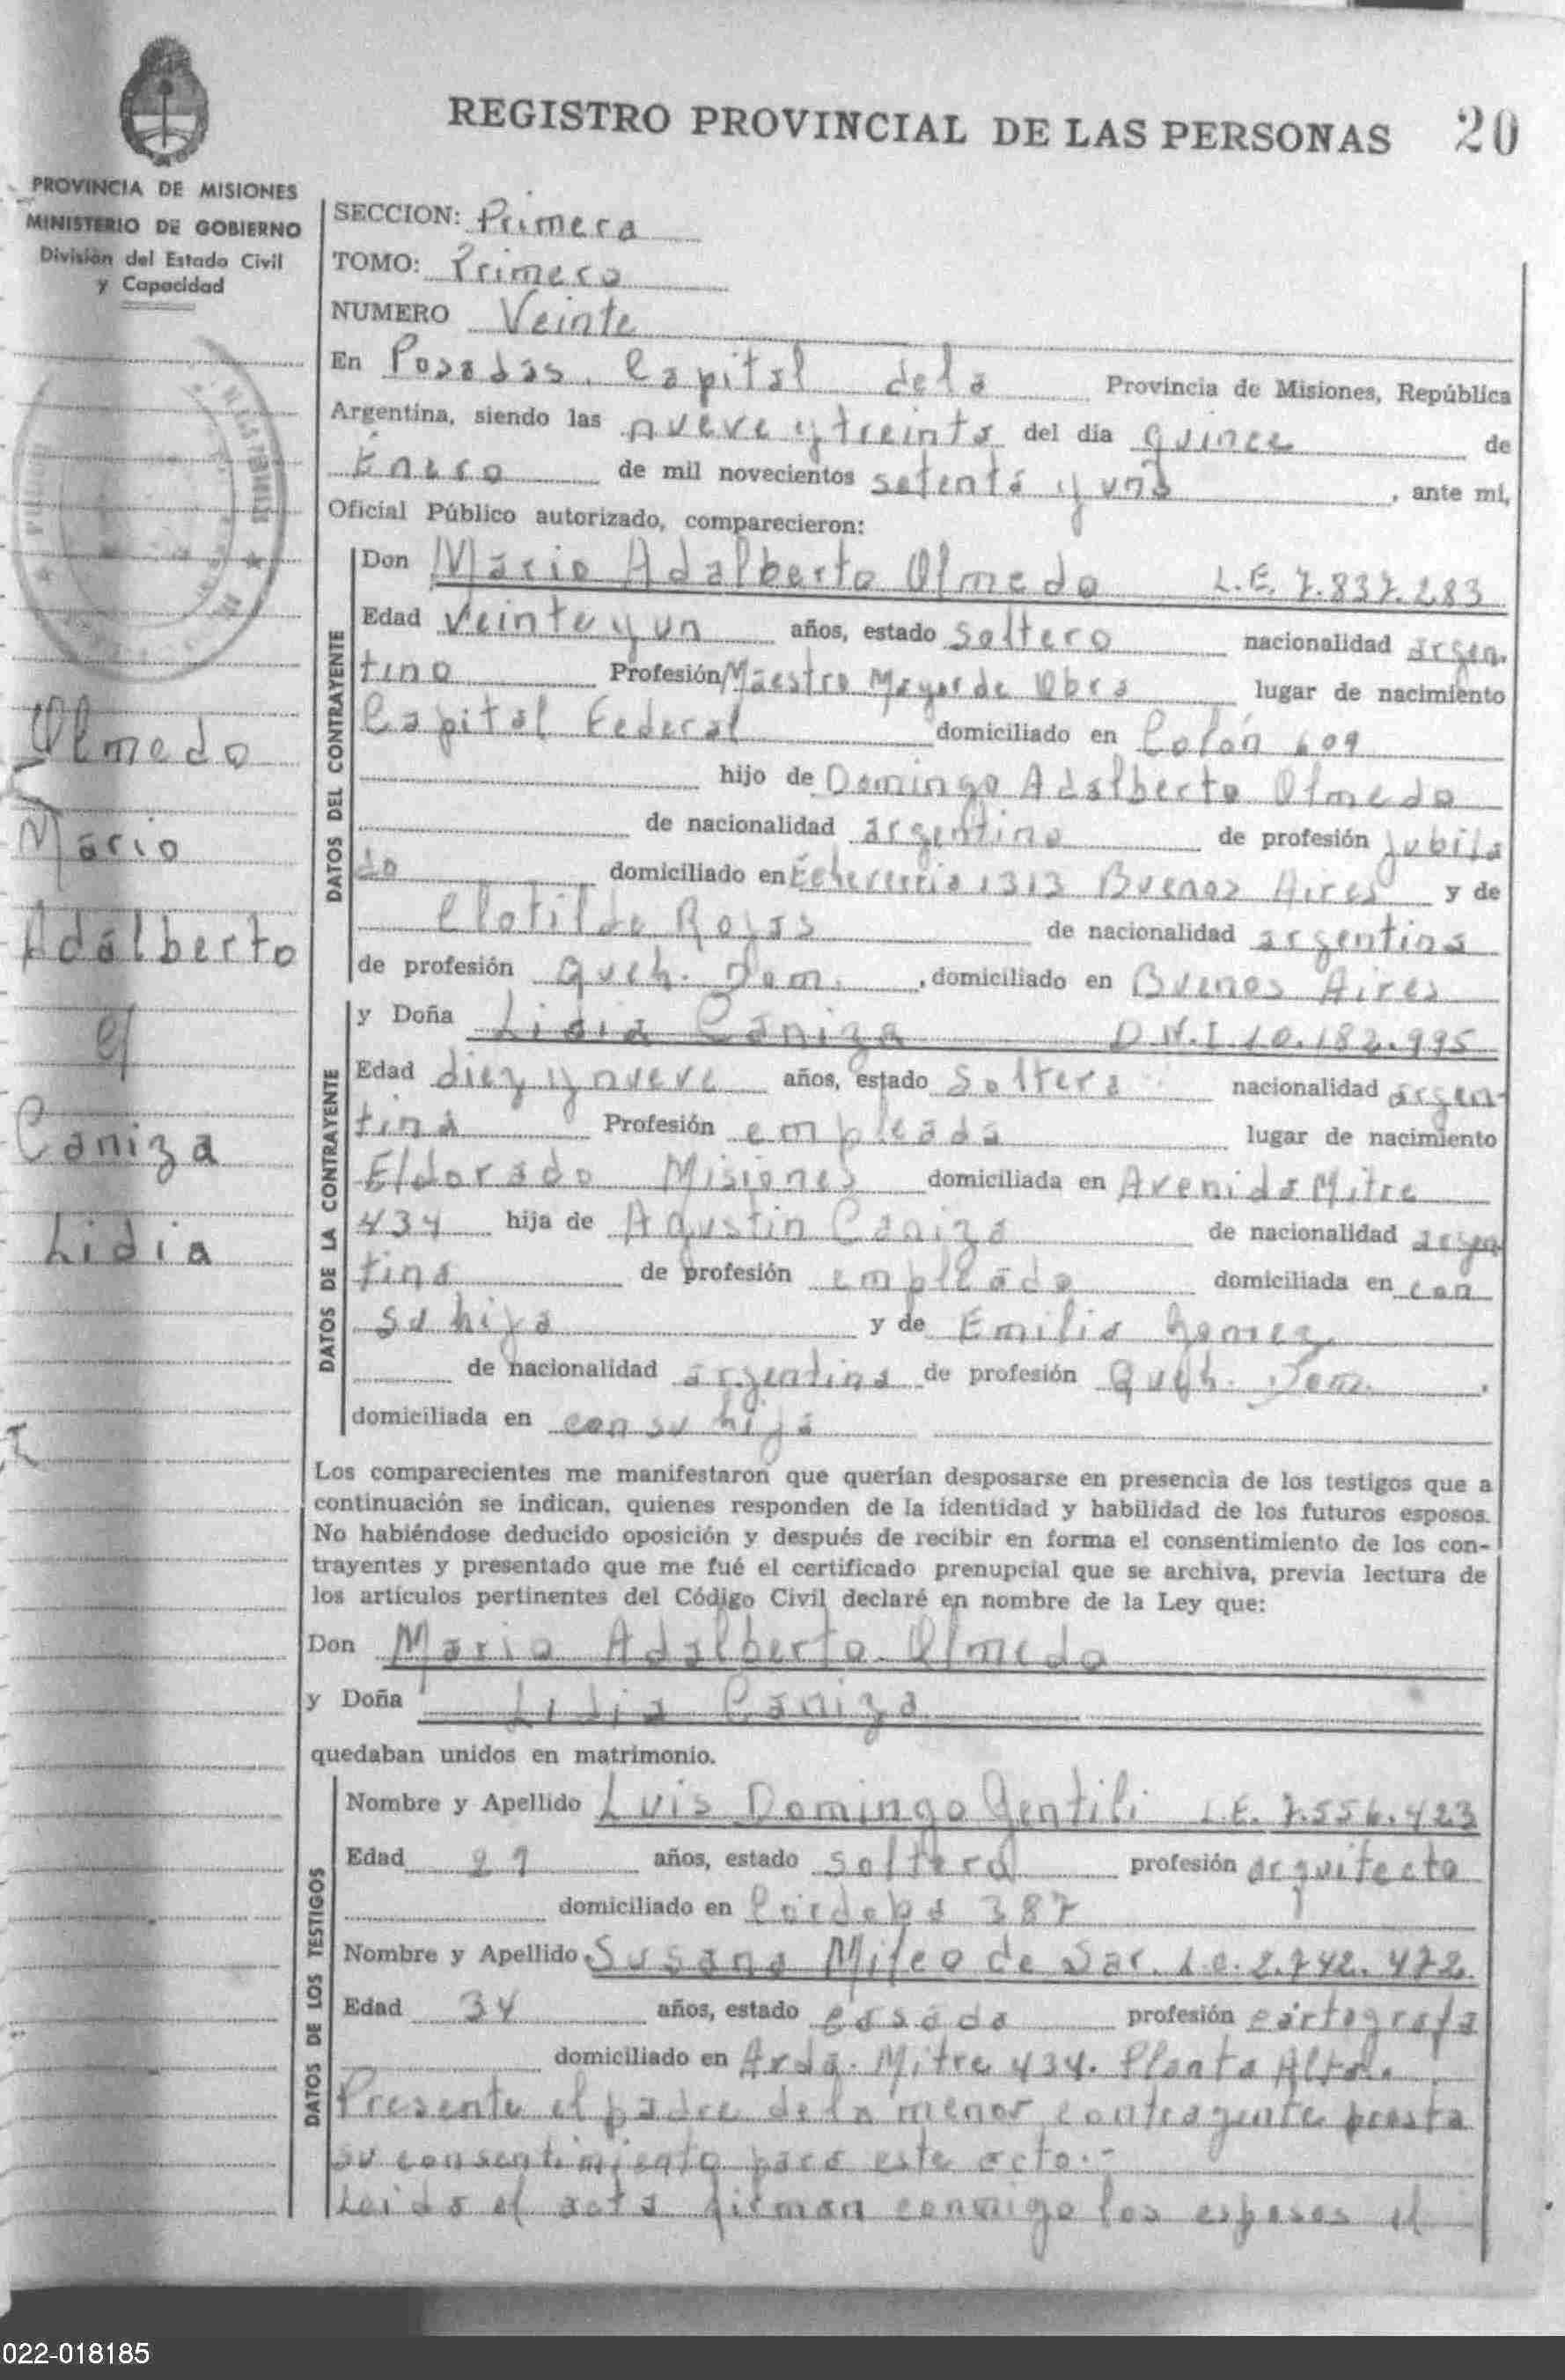 REGISTRO PROVINCIAL DE LAS PERSONAS 20
PROVINCIA DE MISIONES
MINISTERIO DE GOBIERNO
División del Estado Civil
y Capacidad
SECCION: Primera
TOMO: Primero
NUMERO Veinte
En Posadas, Capital de la Provincia de Misiones, República
Argentina, siendo las nueve y treinta del dia quince de
Enero de mil novecientos setenta y uno, ante mi,
Oficial Público autorizado, comparecieron:
DATOS DEL CONTRAYENTE
Don Mario Adalberto Olmedo L.E. 7.837.283
Edad Veinte y un años, estado soltero nacionalidad argen-
tino Profesión Maestro Mayor de Obra lugar de nacimiento
Capital Federal domiciliado en Colón 609
hijo de Domingo Adalberto Olmedo
de nacionalidad argentino de profesión jubila
do domiciliado en Echeverria 1313 Buenos Aires y de
Clotilde Rojas de nacionalidad argentina
de profesión queh. Dom., domiciliado en Buenos Aires
DATOS DE LA CONTRAYENTE
y Doña Lidia Caniza D.N.I 10.182.995
Edad diez y nueve años, estado soltera nacionalidad argen-
tina Profesión empleada lugar de nacimiento
Eldorado Misiones domiciliada en Avenida Mitre
434 hija de Agustin Caniza de nacionalidad argen
tina de profesión empleado domiciliada en con
su hija y de Emilia Gomez
de nacionalidad argentina de profesión Queh. Dom.,
domiciliada en con su hija
Olmedo
Mario
Adalberto
y
Caniza
Lidia
Los comparecientes me manifestaron que querían desposarse en presencia de los testigos que a
continuación se indican, quienes responden de la identidad y habilidad de los futuros esposos.
No habiéndose deducido oposición y después de recibir en forma el consentimiento de los con-
trayentes y presentado que me fué el certificado prenupcial que se archiva, previa lectura de
los artículos pertinentes del Código Civil declaré en nombre de la Ley que:
Don Mario Adalberto Olmedo
y Doña Lidia Caniza
quedaban unidos en matrimonio.
DATOS DE LOS TESTIGOS
Nombre y Apellido Luis Domingo Gentili L.E. 7.556.423
Edad años, estado soltero profesión arquitecto
domiciliado en Córdoba 387
Nombre y Apellido Susana Mileo de Sar. L.C. 2.742.472
Edad 34 años, estado casada profesión cartografa
domiciliado en Avda. Mitre 434. Planta Alta.
Presente el padre de la menor contrayente presta
su consentimiento para este acto.-
Leida el acta firman conmigo los esposos el
022-018185